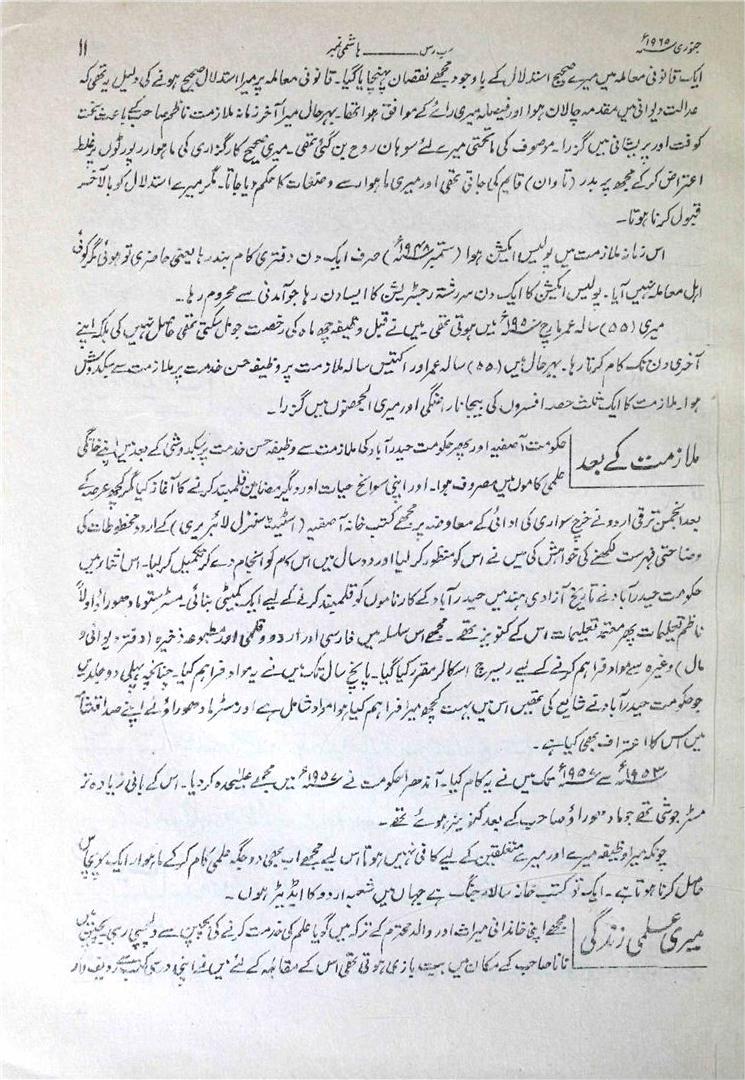 جنوری ۱۹۶۵ء سب رس ہاشمی نمبر ۱۱
ایک قانونی معاملہ میں میرے صحیح استدلال کے باوجود مجھے نقصان پہنچایا گیا۔ قانونی معاملہ پر میرا استدلال صحیح ہونے کی دلیل یہ تھی کہ
عدالت دیوانی میں مقدمہ چالان ہوا اور فیصلہ میری رائے کے موافق ہوا تھا۔ بہرحال میرا آخر زمانہ ملازمت ناظم صاحب کے باعث سخت
کوفت اور پریشانی میں گزرا۔ موصوف کی ماتحتی میرے لئے سوہان روح بن گئی تھی۔ میری صحیح کارگزاری کی ماہوار رپورٹوں پر غلط
اعتراض کرکے مجھ پر بدر (تاوان) قایم کی جاتی تھی اور میری ماہوار سے وضعات کا حکم دیا جاتا۔ مگر میرے استدلال کو بالآخر
قبول کرنا ہوتا۔
اس زمانہ ملازمت میں پولیس ایکشن ہوا (ستمبر ۱۹۴۸ء) صرف ایک دن دفتری کام بند رہا یعنی حاضری تو ہوئی مگر کوئی
اہل معاملہ نہیں آیا۔ پولیس ایکشن کا ایک دن سررشتہ رجسٹریشن کا ایسا دن رہا جو آمدنی سے محروم رہا۔
میری (۵۵) سالہ عمر مارچ ۱۹۵۰ء میں ہوتی تھی۔ میں نے قبل وظیفہ چھ ماہ کی رخصت جو مل سکتی تھی حاصل نہیں کی بلکہ اپنے
آخری دن تک کام کرتا رہا۔ بہرحال میں (۵۵) سالہ عمر اور اکتیس سالہ ملازمت پر وظیفہ حسن خدمت پر ملازمت سے سبکدوش
ہوا۔ ملازمت کا ایک ثلث حصہ افسروں کی بیجا ناراضگی اور میری الجھنوں میں گزرا۔
ملازمت کے بعد
حکومت آصفیہ اور پھر حکومت حیدرآباد کی ملازمت سے وظیفہ حسن خدمت پر سبکدوشی کے بعد میں اپنے خانگی
علمی کاموں میں مصروف ہوا۔ اور اپنی سوانح حیات اور دیگر مضامین قلمبند کرنے کا آغاز کیا مگر کچھ عرصہ کے
بعد انجمن ترقی اردو نے خرچ سواری کی ادائی کے معاوضہ پر مجھے کتب خانہ آصفیہ (اسٹیٹ سنٹرل لائبریری) کے اردو مخطوطات کی
وضاحتی فہرست لکھنے کی خواہش کی میں نے اس کو منظور کر لیا اور دو سال میں اس کام کو انجام دے کر تکمیل کر لیا۔ اس اثناء میں
حکومت حیدرآباد نے تاریخ آزادی ہند میں حیدرآباد کے کارناموں کو قلمبند کرنے کے لیے ایک کمیٹی بنائی۔ مسٹر ستو مادھوراؤ اولاً
ناظم تعلیمات پھر معتمد تعلیمات اس کے کنوینر تھے۔ مجھے اس سلسلہ میں فارسی اور اردو قلمی اور مطبوعہ ذخیرہ (دفتر دیوانی و
مال) وغیرہ سے مواد فراہم کرنے کے لیے ریسرچ اسکالر مقرر کیا گیا۔ پانچ سال تک میں نے یہ مواد فراہم کیا۔ چنانچہ پہلی دو جلدیں
جو حکومت حیدرآباد نے شایع کی تھیں اس میں بہت کچھ میرا فراہم کیا ہوا مواد شامل ہے اور مسٹر مادھوراؤ نے اپنے
میں اس کا اعتراف بھی کیا ہے۔
۱۹۵۳ء سے ۱۹۵۷ء تک میں نے یہ کام کیا۔ آندھرا حکومت نے ۱۹۵۷ء میں مجھے علیٰحدہ کر دیا۔ اس کے بانی زیادہ تر
مسٹر جوشی تھے جو مادھوراؤ صاحب کے بعد کنوینر ہوئے تھے۔
چونکہ میرا وظیفہ میرے اور میرے متعلقین کے لیے کافی نہیں ہوتا اس لیے مجھے اب بھی دو جگہ علمی کام کرکے ماہوار ایک سو پچاس
حاصل کرنا ہوتا ہے۔ ایک تو کتب خانہ سالار جنگ ہے جہاں میں شعبہ اردو کا ایڈیٹر ہوں۔
میری علمی زندگی
مجھے اپنی خاندانی میراث اور والد محترم کے ترکہ میں گویا علم کی خدمت کرنے کی بچپن سے دلچسپی رہی۔ بچپن میں
نانا صاحب کے مکان میں بیت بازی ہوتی تھی اس کے مقابلہ کے لئے میں نے اپنی درسی کتب سے ردیف وار